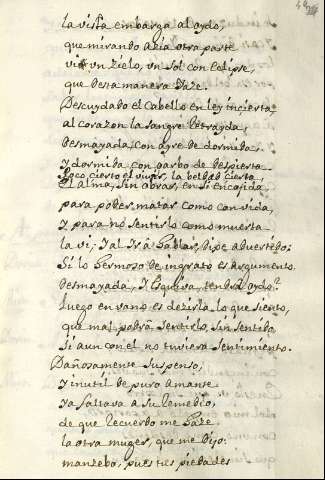 la vista embarga al oydo,
que mirando azia otra parte
vi un zielo, un sol con eclipse,
que desta manera Yaze.
Descuydado el Cabello en ley incierta
al corazon la sangre Retrayda,
desmayada, con ayre de dormida,
Y dormida con garbo de despierta
Poco cierto el vivir, la beldad cierta,
el alma, sin obrar, en si encojida,
para poder matar como con vida,
Y para no sentirlo como muerta
la vi; Y al Yr à hablar, dixe advertido:
Si lo hermoso de ingrato es argumento
desmayada, Y esquiva, tendrà oydo?
luego en vano es dezirla lo que siento,
que mal podrà sentirlo, sin sentido,
Si aun con el no tuviera sentimiento.
Dañosamente suspenso,
Y inutil de puro Amante
Ya faltava a su Remedio,
de que Recuerdo me haze
la otra muger, que me dijo:
manzebo, pues tus piedades